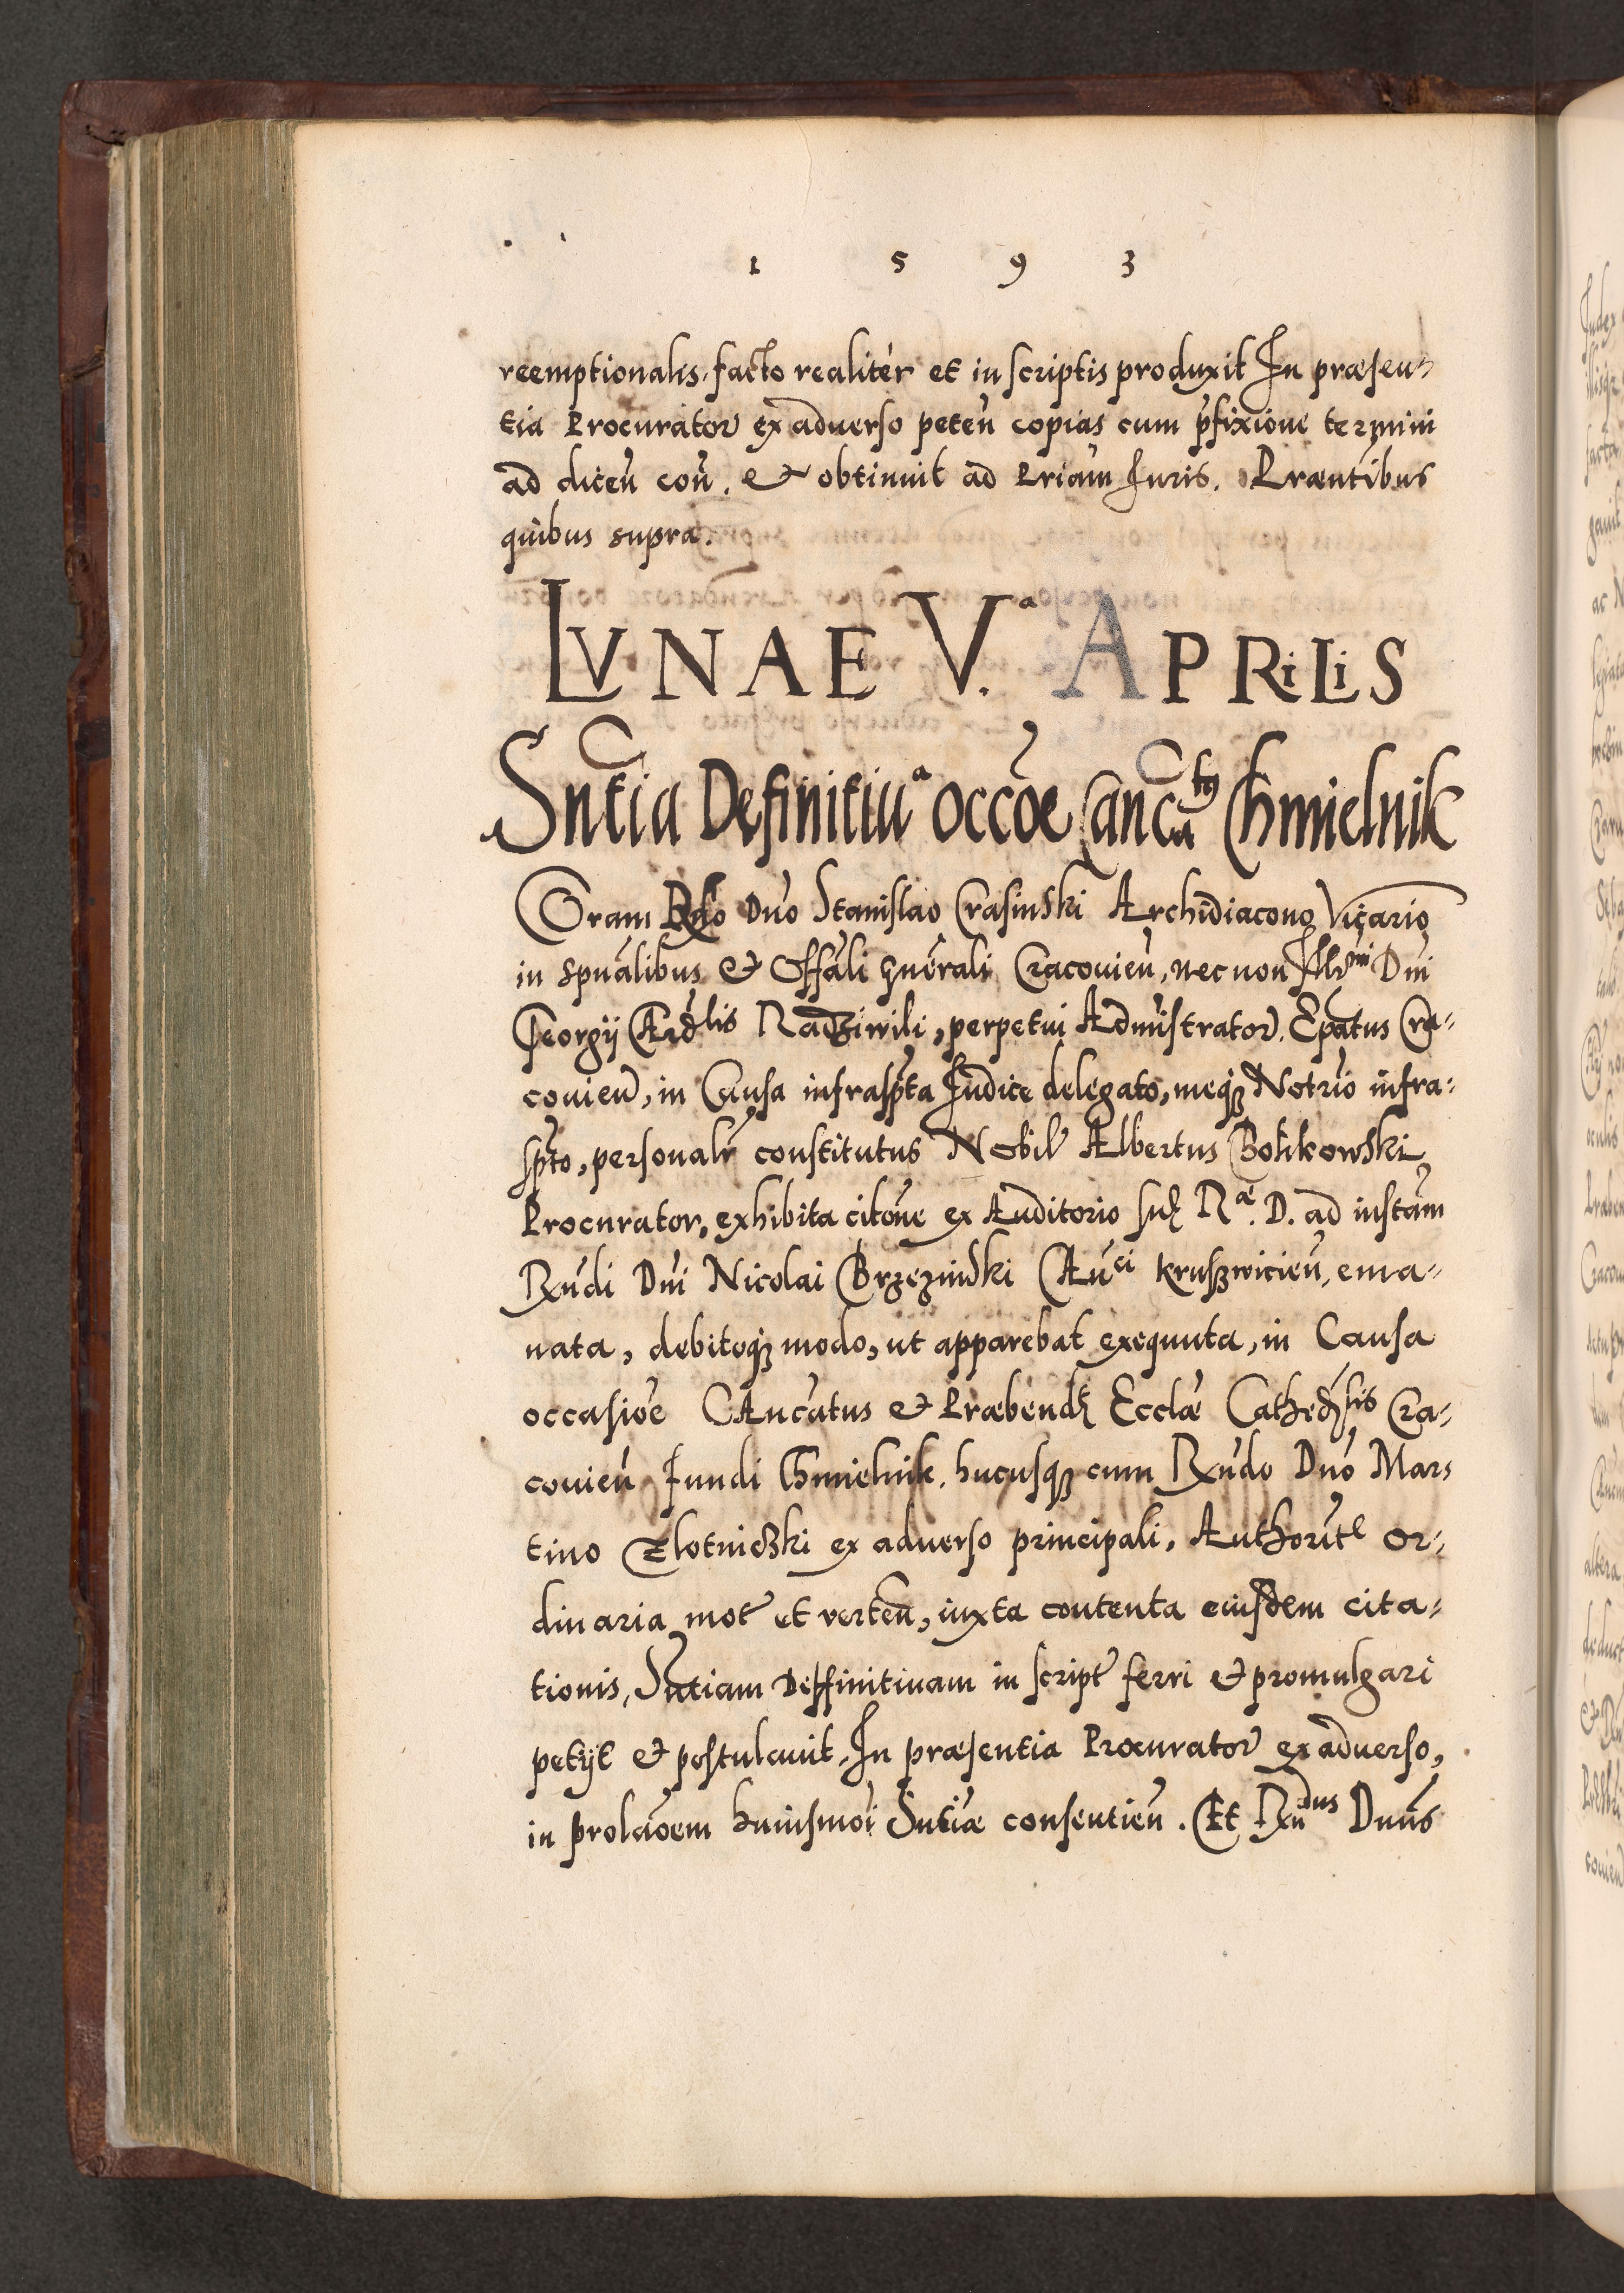 1 5 9 3
reemptionalis facto realiter et in scriptis produxit In præsen-
tia Procurator ex adverso peteñ copias cum p̃fixione termini
ad diceñ coñ. & obtinuit ad Priam Iuris. Præntibus
quibus supra.
LVNAE V.ª APRiLiS
Sñtia Definitiuª occoe Cancatꝰ Chmielnik
Coram Rdo Dno Stanislao Crasinski Archidiacono Vicario
in spũalibus & Offãli gñerali Cracouieñ, nec non Illmi Dni
Georgij CArdlis Radziwili, perpetui Admĩstrator. Epãtus Cra-
couieñ, in Causa infrasp̃ta Iudice delegato, meqꝫ Notrio infra-
sp̃to, personalr̃ constitutus Nobil Albertus Bolikowski
Procurator, exhibita citõne ex Auditorio suꝭ Rae. D. ad instam
Rñdi Dñi Nicolai Brzezinski CAñci kruszwicieñ, ema-
nata, debitoqꝫ modo, ut apparebat exequuta, in Causa
occasiõe CAncatus & Præbendꝭ Ecclæ Cathedrlis Cra-
couieñ fundi Chmielnik. hucusqꝫ cum Rñdo Dño Mar-
tino Zlotniczki ex adverso principali, Authoritte or-
dinaria mot̃ et verteñ, iuxta contenta eiusdem cita-
tionis, Sñtiam Deffinitivam in script̃ ferri & promulgari
petijt & postulauit. In præsentia Procurator ex adverso,
in prolaõem huiusmoi Sntiæ consentieñ. Et Rndus Dnus